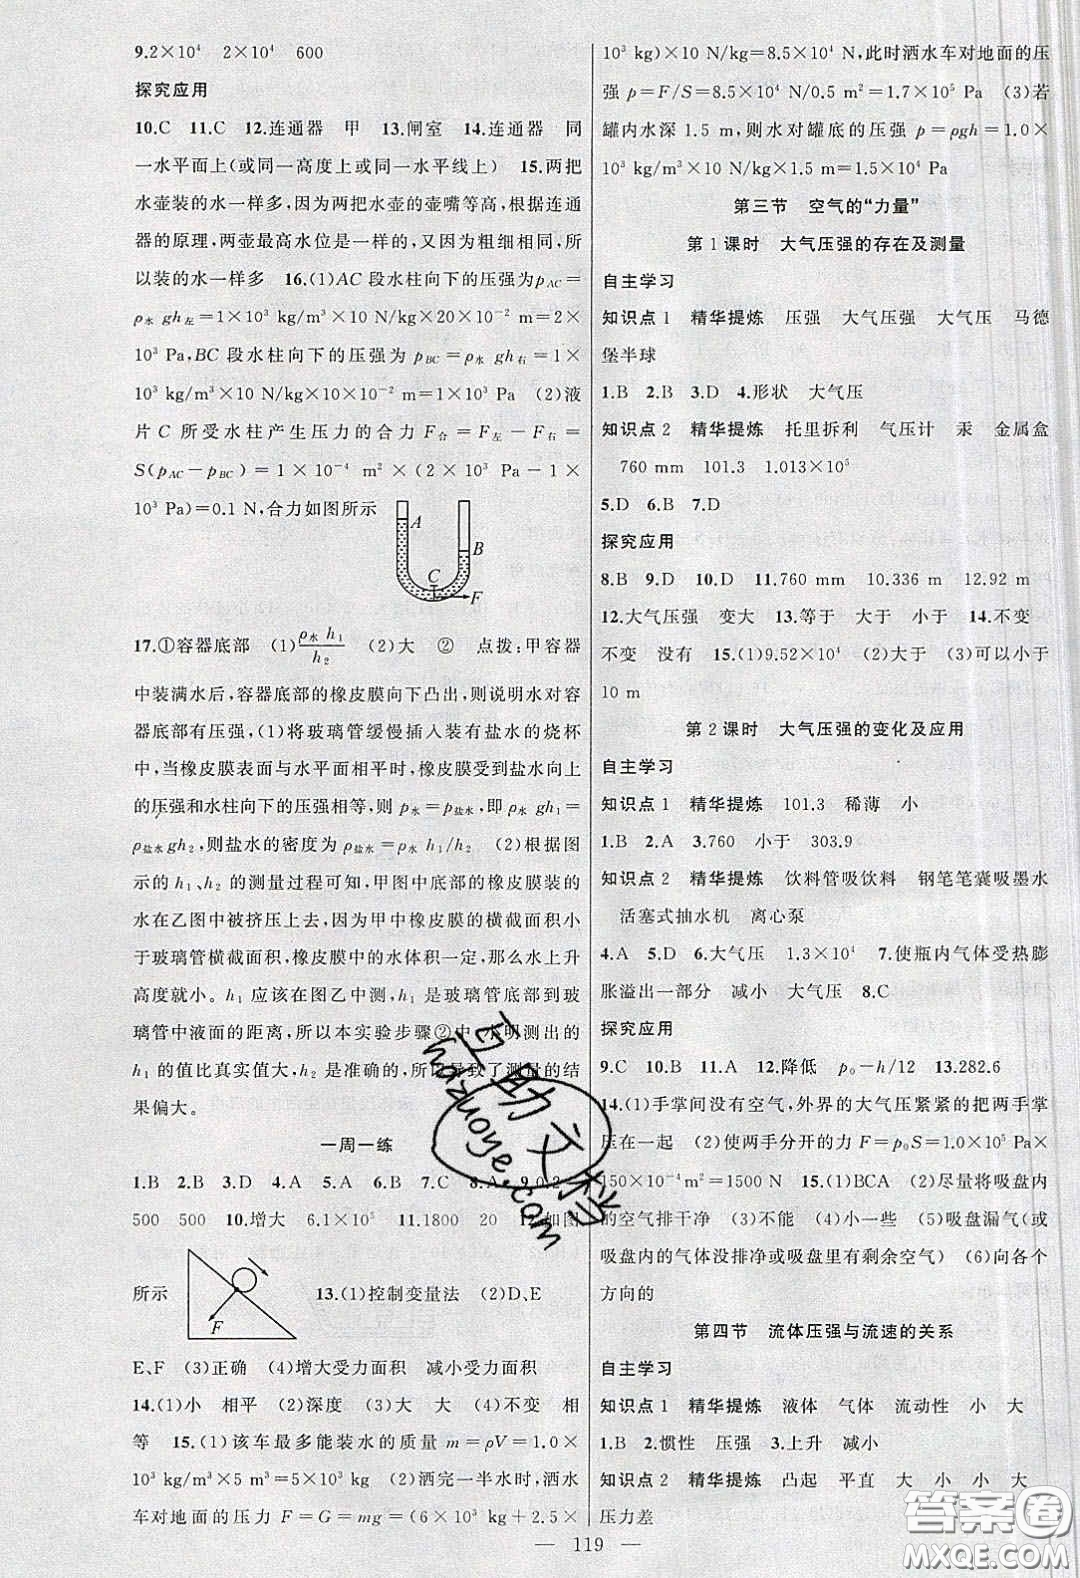 9.2×10⁴  2×10⁴  600
探究应用
10.C  11.C  12.连通器  甲  13.闸室  14.连通器  同
一水平面上(或同一高度上或同一水平线上)  15.两把
水壶装的水一样多,因为两把水壶的壶嘴等高,根据连通
器的原理,两壶最高水位是一样的,又因为粗细相同,所
以装的水一样多  16.(1)AC 段水柱向下的压强为 p_AC＝
ρ水 gh左＝1×10³ kg/m³×10 N/kg×20×10⁻² m＝2×
10³ Pa,BC 段水柱向下的压强为 p_BC＝ρ水 gh右＝1×
10³ kg/m³×10 N/kg×10×10⁻² m＝1×10³ Pa  (2)液
片 C 所受水柱产生压力的合力 F合＝F左－F右＝
S(p_AC－p_BC)＝1×10⁻⁴ m²×(2×10³ Pa－1×
10³ Pa)＝0.1 N,合力如图所示
A
B
C
F
17.①容器底部  (1)ρ水 h₁/h₂  (2)大  ②  点拨:甲容器
中装满水后,容器底部的橡皮膜向下凸出,则说明水对容
器底部有压强,(1)将玻璃管缓慢插入装有盐水的烧杯
中,当橡皮膜表面与水平面相平时,橡皮膜受到盐水向上
的压强和水柱向下的压强相等,则 p水＝p盐水,即 ρ水 gh₁＝
ρ盐水gh₂,则盐水的密度为 ρ盐水＝ρ水 h₁/h₂  (2)根据图
示的 h₁、h₂ 的测量过程可知,甲图中底部的橡皮膜装的
水在乙图中被挤压上去,因为甲中橡皮膜的横截面积小
于玻璃管横截面积,橡皮膜中的水体积一定,那么水上升
高度就小。h₁ 应该在图乙中测,h₁ 是玻璃管底部到玻
璃管中液面的距离,所以本实验步骤②中,小明测出的
h₁ 的值比真实值大,h₂ 是准确的,所以导致了测量的结
果偏大。
一周一练
1.B  2.B  3.D  4.D  5.A  6.B  7.C  8.A  9.0.2
500  500  10.增大  6.1×10⁵  11.1800  20  12.如图
所示
F
13.(1)控制变量法  (2)D、E
E、F  (3)正确  (4)增大受力面积  减小受力面积
14.(1)小  相平  (2)深度  (3)大  大  (4)不变  相
等  15.(1)该车最多能装水的质量 m＝ρV＝1.0×
10³ kg/m³×5 m³＝5×10³ kg  (2)洒完一半水时,洒水
车对地面的压力 F＝G＝mg＝(6×10³ kg＋2.5×
10³ kg)×10 N/kg＝8.5×10⁴ N,此时洒水车对地面的压
强 p＝F/S＝8.5×10⁴ N/0.5 m²＝1.7×10⁵ Pa  (3)若
罐内水深 1.5 m,则水对罐底的压强 p＝ρgh＝1.0×
10³ kg/m³×10 N/kg×1.5 m＝1.5×10⁴ Pa
第三节  空气的“力量”
第 1 课时  大气压强的存在及测量
自主学习
知识点 1  精华提炼  压强  大气压强  大气压  马德
堡半球
1.B  2.B  3.D  4.形状  大气压
知识点 2  精华提炼  托里拆利  气压计  汞  金属盒
760 mm  101.3  1.013×10⁵
5.D  6.B  7.D
探究应用
8.B  9.D  10.D  11.760 mm  10.336 m  12.92 m
12.大气压强  变大  13.等于  大于  小于  14.不变
不变  没有  15.(1)9.52×10⁴  (2)大于  (3)可以小于
10 m
第 2 课时  大气压强的变化及应用
自主学习
知识点 1  精华提炼  101.3  稀薄  小
1.B  2.A  3.760  小于  303.9
知识点 2  精华提炼  饮料管吸饮料  钢笔笔囊吸墨水
活塞式抽水机  离心泵
4.A  5.D  6.大气压  1.3×10⁴  7.使瓶内气体受热膨
胀溢出一部分  减小  大气压  8.C
探究应用
9.C  10.B  11.A  12.降低  p₀－h/12  13.282.6
14.(1)手掌间没有空气,外界的大气压紧紧的把两手掌
压在一起  (2)使两手分开的力 F＝p₀S＝1.0×10⁵ Pa×
150×10⁻⁴ m²＝1500 N  15.(1)BCA  (2)尽量将吸盘内
的空气排干净  (3)不能  (4)小一些  (5)吸盘漏气(或
吸盘内的气体没排净或吸盘里有剩余空气)  (6)向各个
方向的
第四节  流体压强与流速的关系
自主学习
知识点 1  精华提炼  液体  气体  流动性  小  大
1.B  2.惯性  压强  3.上升  减小
知识点 2  精华提炼  凸起  平直  大  小  小  大
压力差
— 119 —
互助文档
hazuoye.com
答案圈
MXQE.COM